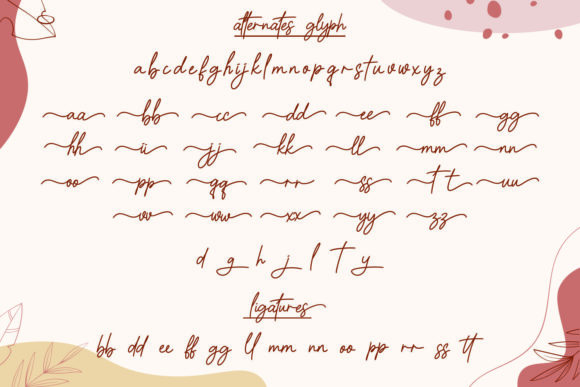 alternates glyph
abcdefghijklmnopqrstuvwxyz
aa bb cc dd ee ff gg
hh ii jj kk ll mm nn
oo pp qq rr ss tt uu
vv ww xx yy zz
d g h j l t y
ligatures
bb dd ee ff gg ll mm nn oo pp rr ss tt